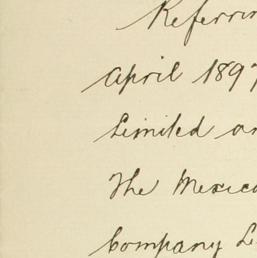 Referrin
April 1897
Limited an
The Mexica
Company L